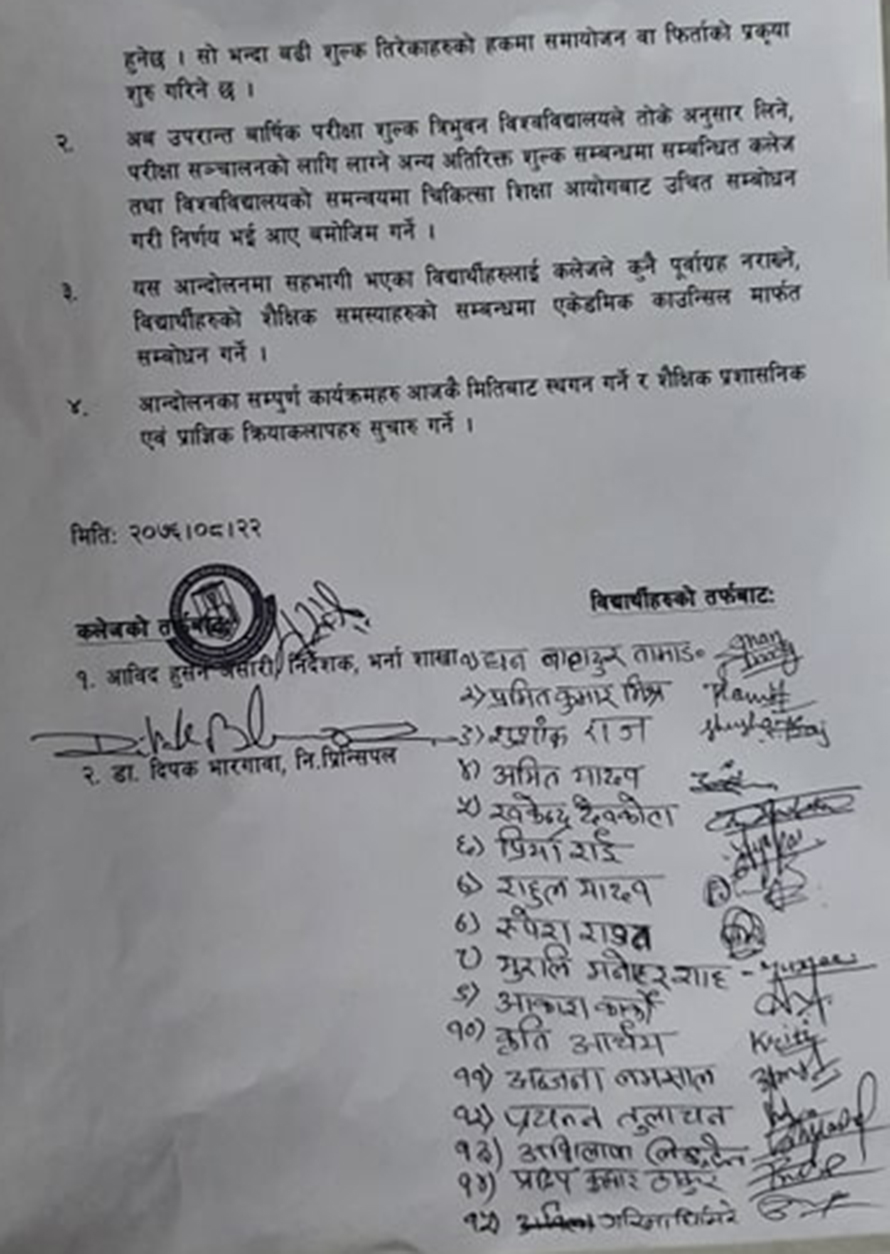 हुनेछ । सो भन्दा बढी शुल्क तिरेकाहरुको हकमा समायोजन वा फिर्ताको प्रकृया
शुरु गरिने छ ।
२. अब उपरान्त बार्षिक परीक्षा शुल्क त्रिभुवन विश्वविद्यालयले तोके अनुसार लिने,
परीक्षा सञ्चालनको लागि लाग्ने अन्य अतिरिक्त शुल्क सम्बन्धमा सम्बन्धित कलेज
तथा विश्वविद्यालयको समन्वयमा चिकित्सा शिक्षा आयोगबाट उचित सम्बोधन
गरी निर्णय भई आए बमोजिम गर्ने ।
३. यस आन्दोलनमा सहभागी भएका विद्यार्थीहरुलाई कलेजले कुनै पूर्वाग्रह नराख्ने,
विद्यार्थीहरुको शैक्षिक समस्याहरुको सम्बन्धमा एकेडमिक काउन्सिल मार्फत
सम्बोधन गर्ने ।
४. आन्दोलनका सम्पुर्ण कार्यक्रमहरु आजकै मितिबाट स्थगन गर्ने र शैक्षिक प्रशासनिक
एवं प्राज्ञिक क्रियाकलापहरु सुचारु गर्ने ।
मितिः २०७६।०८।२२
कलेजको तर्फबाटः
१. आविद हुसेन अंसारी, निर्देशक, भर्ना शाखा
२. डा. दिपक भारगावा, नि.प्रिन्सिपल
विद्यार्थीहरुको तर्फबाटः
१) धन बहादुर तामाङ
२) प्रमित कुमार मिश्र
३) शुशांक राज
४) अमित यादव
५) देवकोटा
६) प्रिया राई
७) राहुल यादव
८) रुपेश
९) मुरालि मनोहर शाह
९) आकाश कार्की
१०) कृति आचार्य
११) अञ्जना लम्साल
१२) तुलाचन
१३) अभिलाषा
१४) प्रदिप कुमार ठाकुर
१५) गरिमा घिमिरे